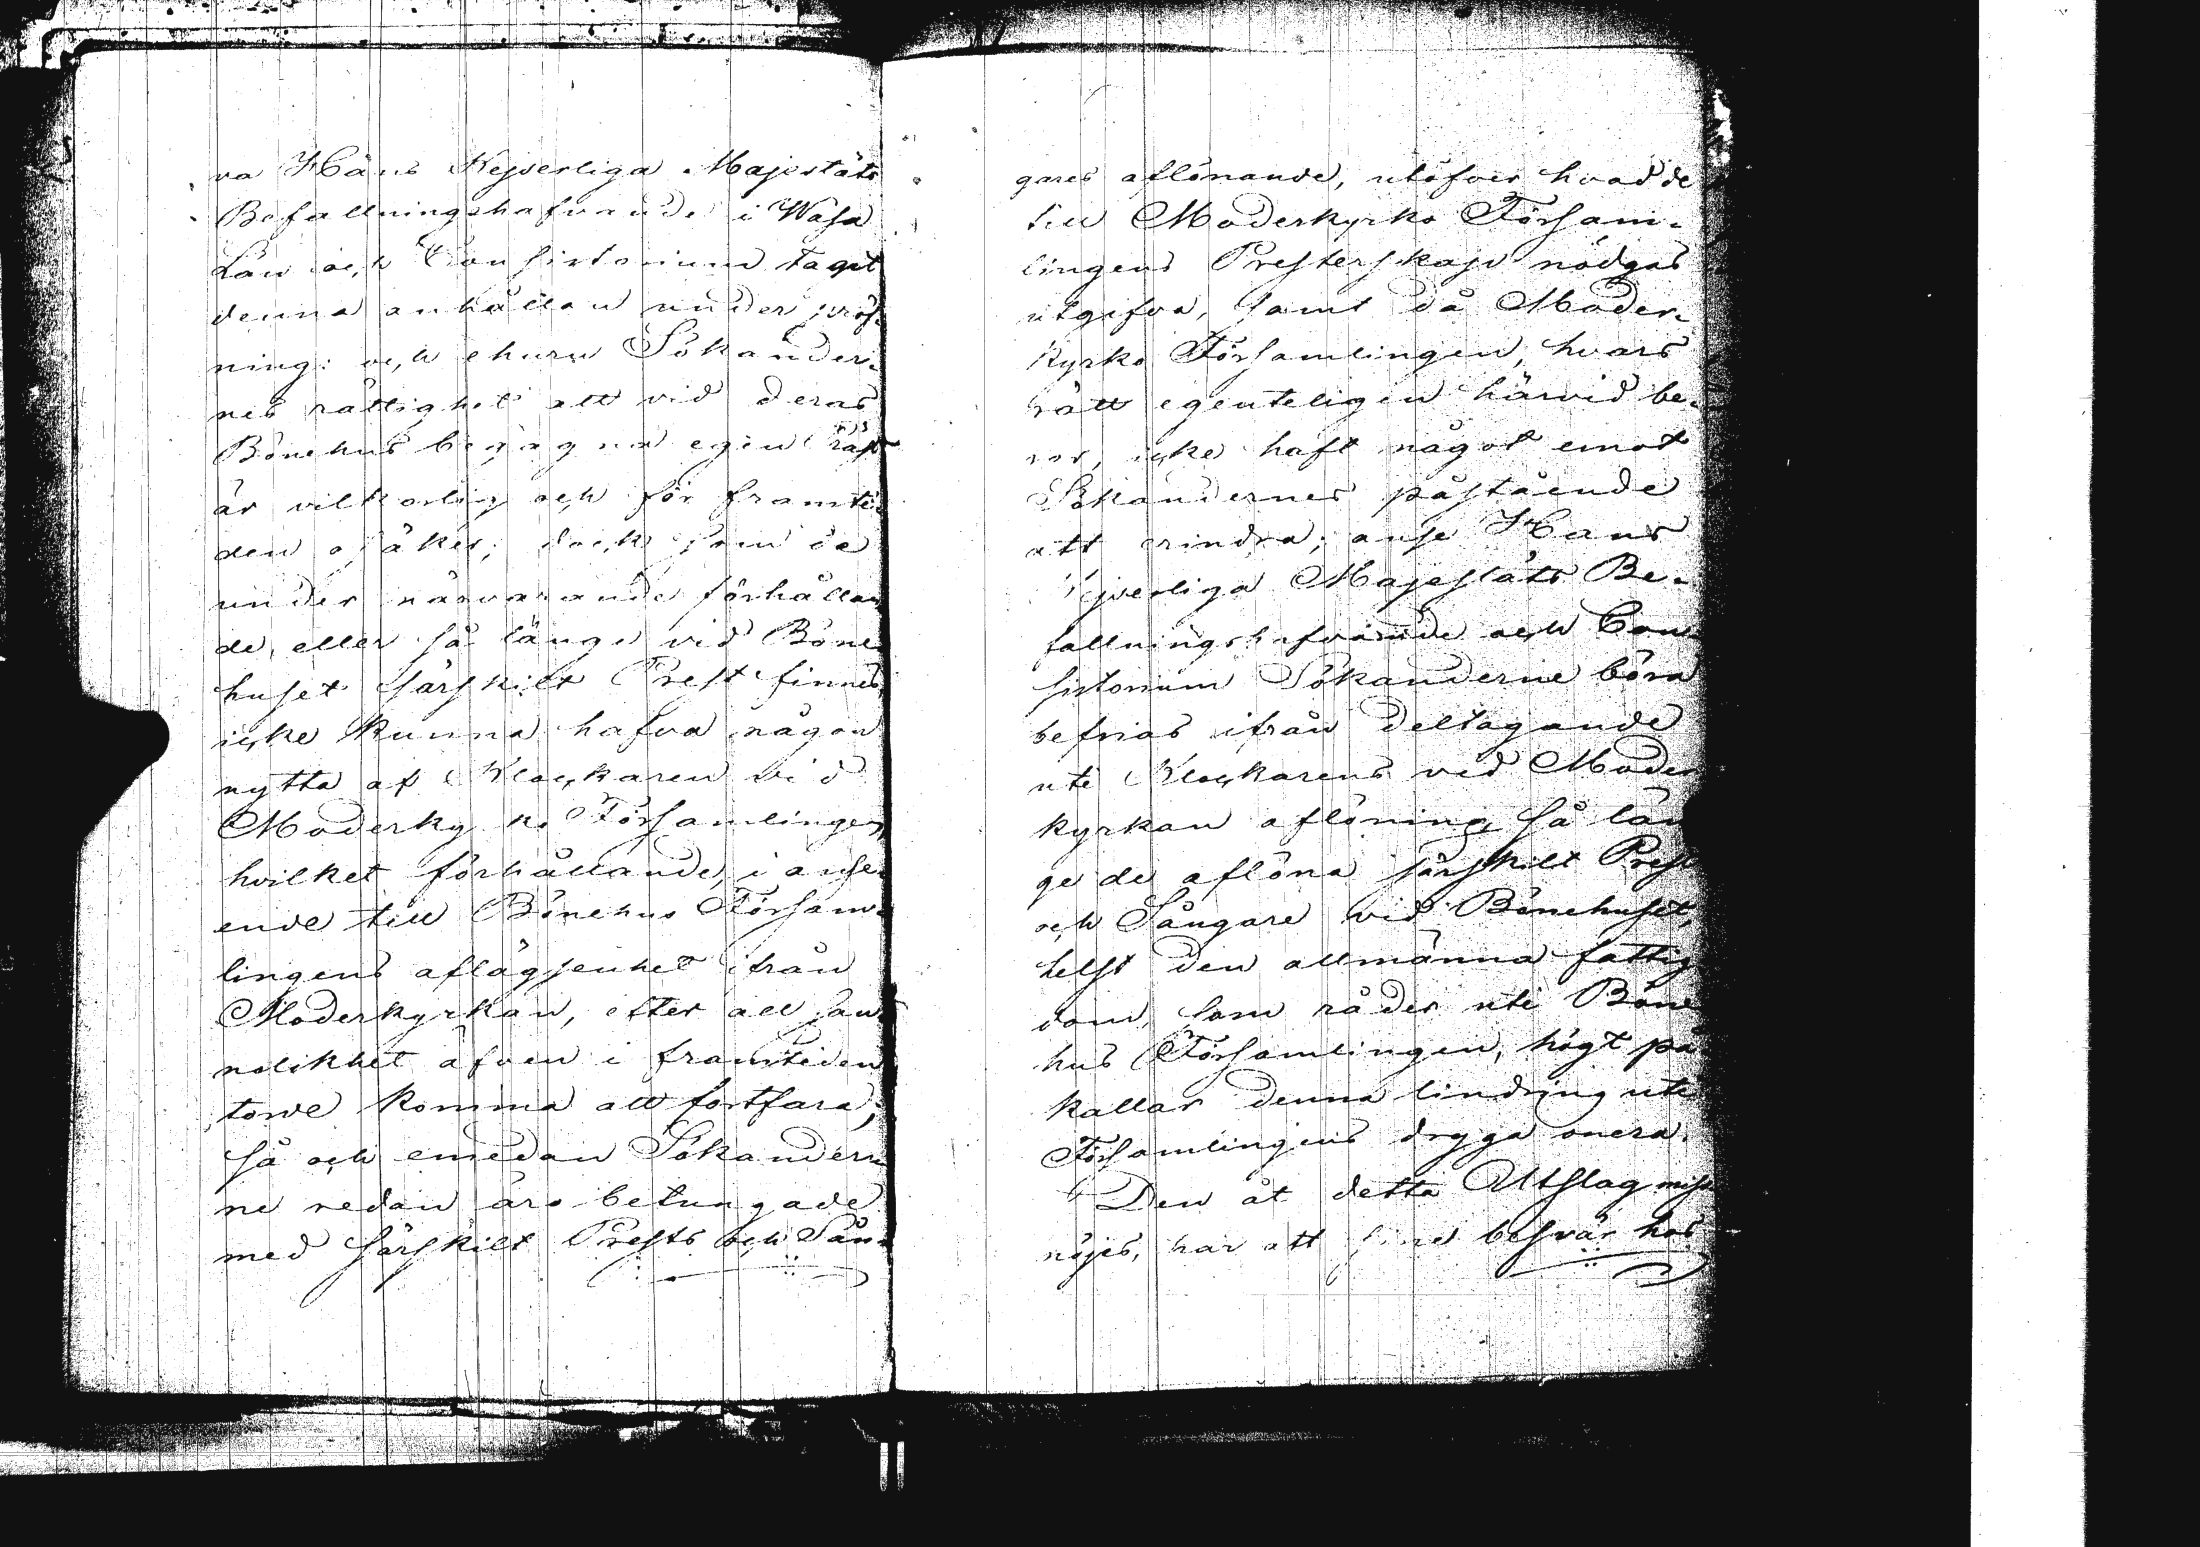 va Hans Kejserliga Majestäts
Befallningshafvande i Wasa
Län och Consistorium tagit
denna anhållan under pröf-
ning: och ehuru Sökander-
nes rättighet att vid deras
Bönehus begagna egen
är vilkorlig och för framti-
den osäker; dock som de
under närvarande förhållan
de, eller så länge vid Böne
huset särskilt Prest finnes
icke kunna hafva någon
nytta af Klockaren vid
Moderkyrko Församlingen,
hvilket förhållande, i anse-
ende till Bönehus Försam-
lingens aflägsenhet ifrån
Moderkyrkan, efter all san-
nolikhet äfven i framtiden
torde komma att fortfara;
så och emedan Sökander-
ne redan äro betungade
med särskilt Prests och Sån-
gares aflönande, utöfver hvad de
till Moderkyrko Försam-
lingens Presterskap nödgas
utgifva, samt då Moder-
kyrko Församlingen, hvars
rätt egenteligen härvid be-
ror, icke haft något emot
Sökandernes påstående
att erindra; anse Hans
Kejserliga Majestäts Be-
fallningshafvande och Con-
sistorium Sökanderne böra
befrias ifrån deltagande
uti Klockarens vid Moder
kyrkan aflöning så län
ge de aflöna särskilt Prest
och Sångare vid Bönehuset,
helst den allmänna fattig
dom, som råder uti Böne
hus Församlingen, högt på-
kallar denna lindring uti
Församlingens dryga onera.
Den åt detta Utslag miss
nöjes, har att sine besvär hos